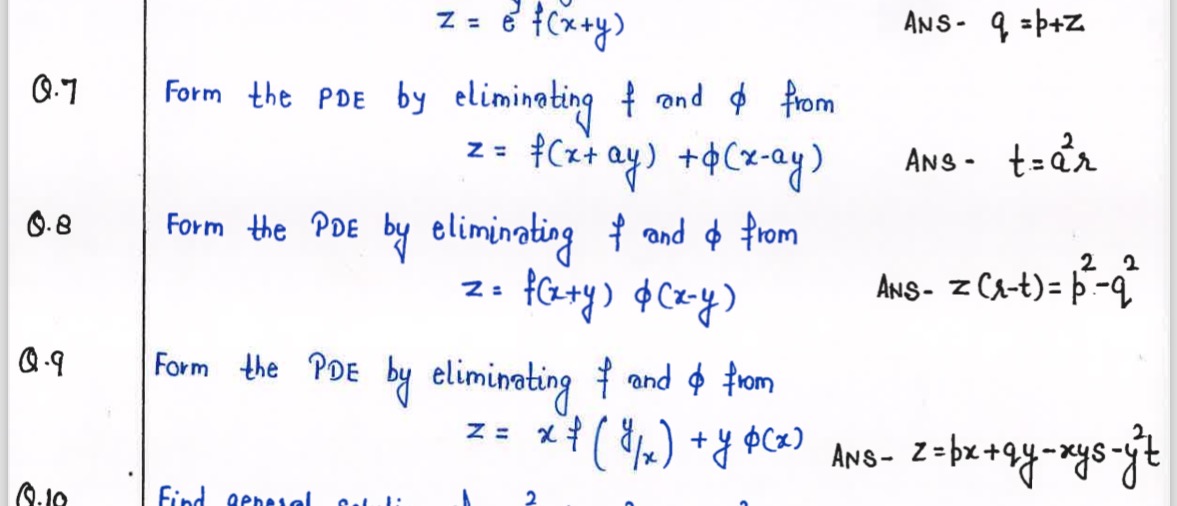 z = e^y f(x+y) ANS- q = p+z
Q.7 Form the PDE by eliminating f and ϕ from
z = f(x+ay) + ϕ(x-ay) ANS- t = a²r
Q.8 Form the PDE by eliminating f and ϕ from
z = f(x+y) ϕ(x-y) ANS- z(r-t) = p²-q²
Q.9 Form the PDE by eliminating f and ϕ from
z = x f(y/x) + y ϕ(x) ANS- z = px+qy-xys-y²t
Q.10 Find general